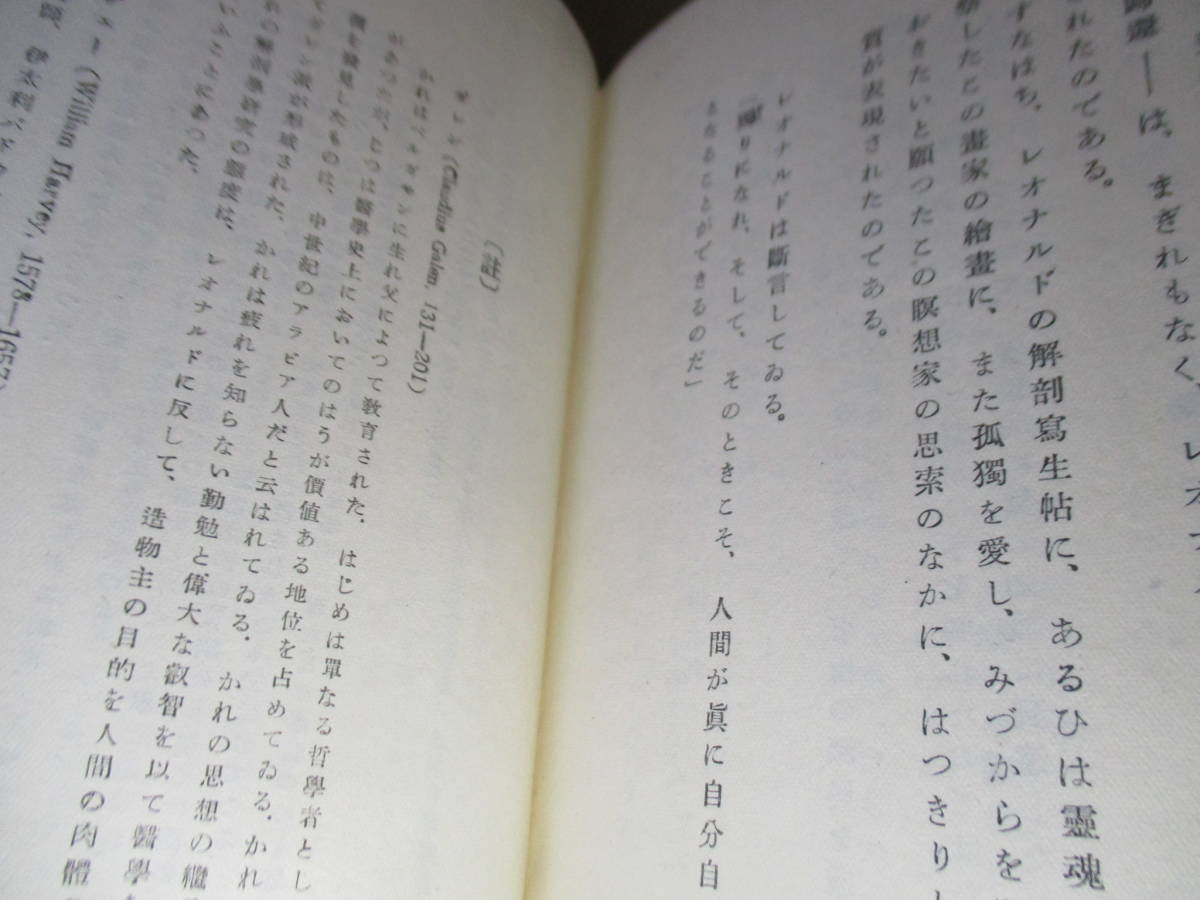 は、まぎれもなく、レオナ
れたのである。
すなはち、レオナルドの解剖寫生帖に、あるひは靈魂
察したこの畫家の繪畫に、また孤獨を愛し、みづからを
おきたいと願つたこの瞑想家の思索のなかに、はつきりと
質が表現されたのである。
レオナルドは斷言してゐる。
りになれ、そして、そのときこそ、人間が眞に自分自
となることができるのだ」
〔註〕
ガレン(Claudius Galen 131—201)
かれはペルガモンに生れ父によつて敎育された。はじめは單なる哲學者とし
があつたが、じつは醫學史上においてのはうが價値ある地位を占めてゐる。かれ
値を發見したものは、中世紀のアラビア人だと云はれてゐる。かれの思想の繼
てガレン派が形成された。かれは疲れを知らない勤勉と偉大な叡智を以て醫學
れの解剖學硏究の態度は、レオナルドに反して、造物主の目的を人間の肉體
いふことにあつた。
(William Harvey, 1578—1657)
伊太利パドヴ